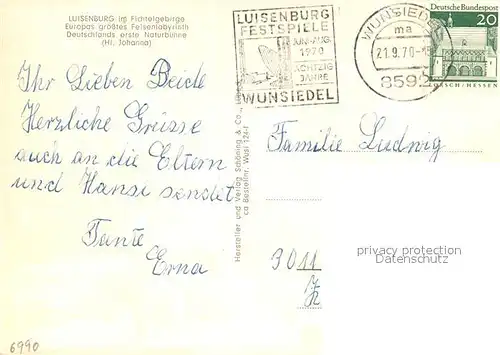 LUISENBURG im Fichtelgebirge
Europas größtes Felsenlabyrinth
Deutschlands erste Naturbühne
(Hl. Johanna)
LUISENBURG
FESTSPIELE
JUNI-AUG.
1970
ACHTZIG
JAHRE
WUNSIEDEL
WUNSIEDEL
ma
21.9.70
859
Deutsche Bundespost
20
LORSCH/HESSEN
Ihr Lieben Beide
Herzliche Grüsse
auch an die Eltern
und Hansi sendet
Tante
Erna
Hersteller und Verlag Schöning & Co.,
Bestellnr. Wusi
Familie Ludwig
3011
privacy protection
www.oldthing.de
6990